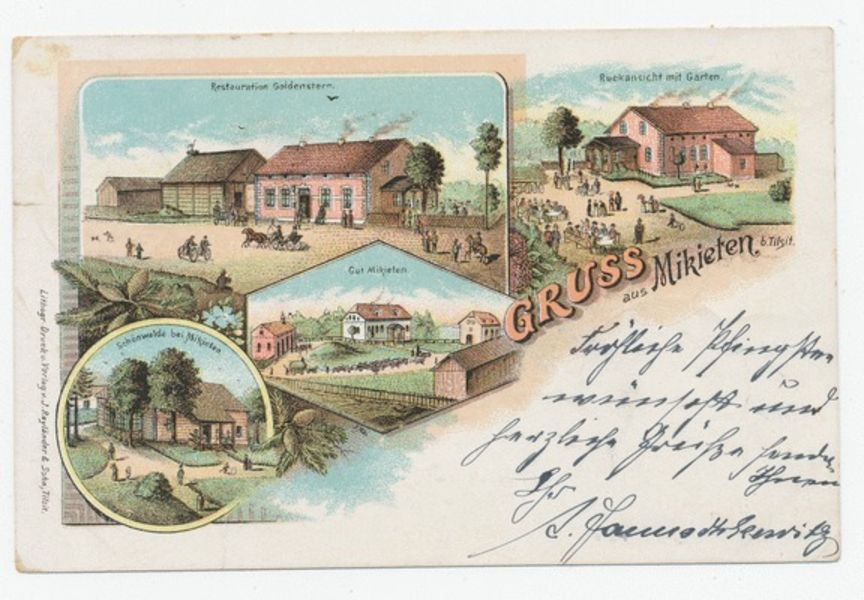 Restauration Goldenstern.
Rückansicht mit Garten.
GRUSS
aus Mikieten
b. Tilsit.
Gut Mikieten.
Schönwalde bei Mikieten
Lithogr. Druck u. Verlag v. J. Reyländer & Sohn, Tilsit.
Fröhliche Pfingsten
wünscht und
herzliche Grüße sendet
Ihnen
Ihr